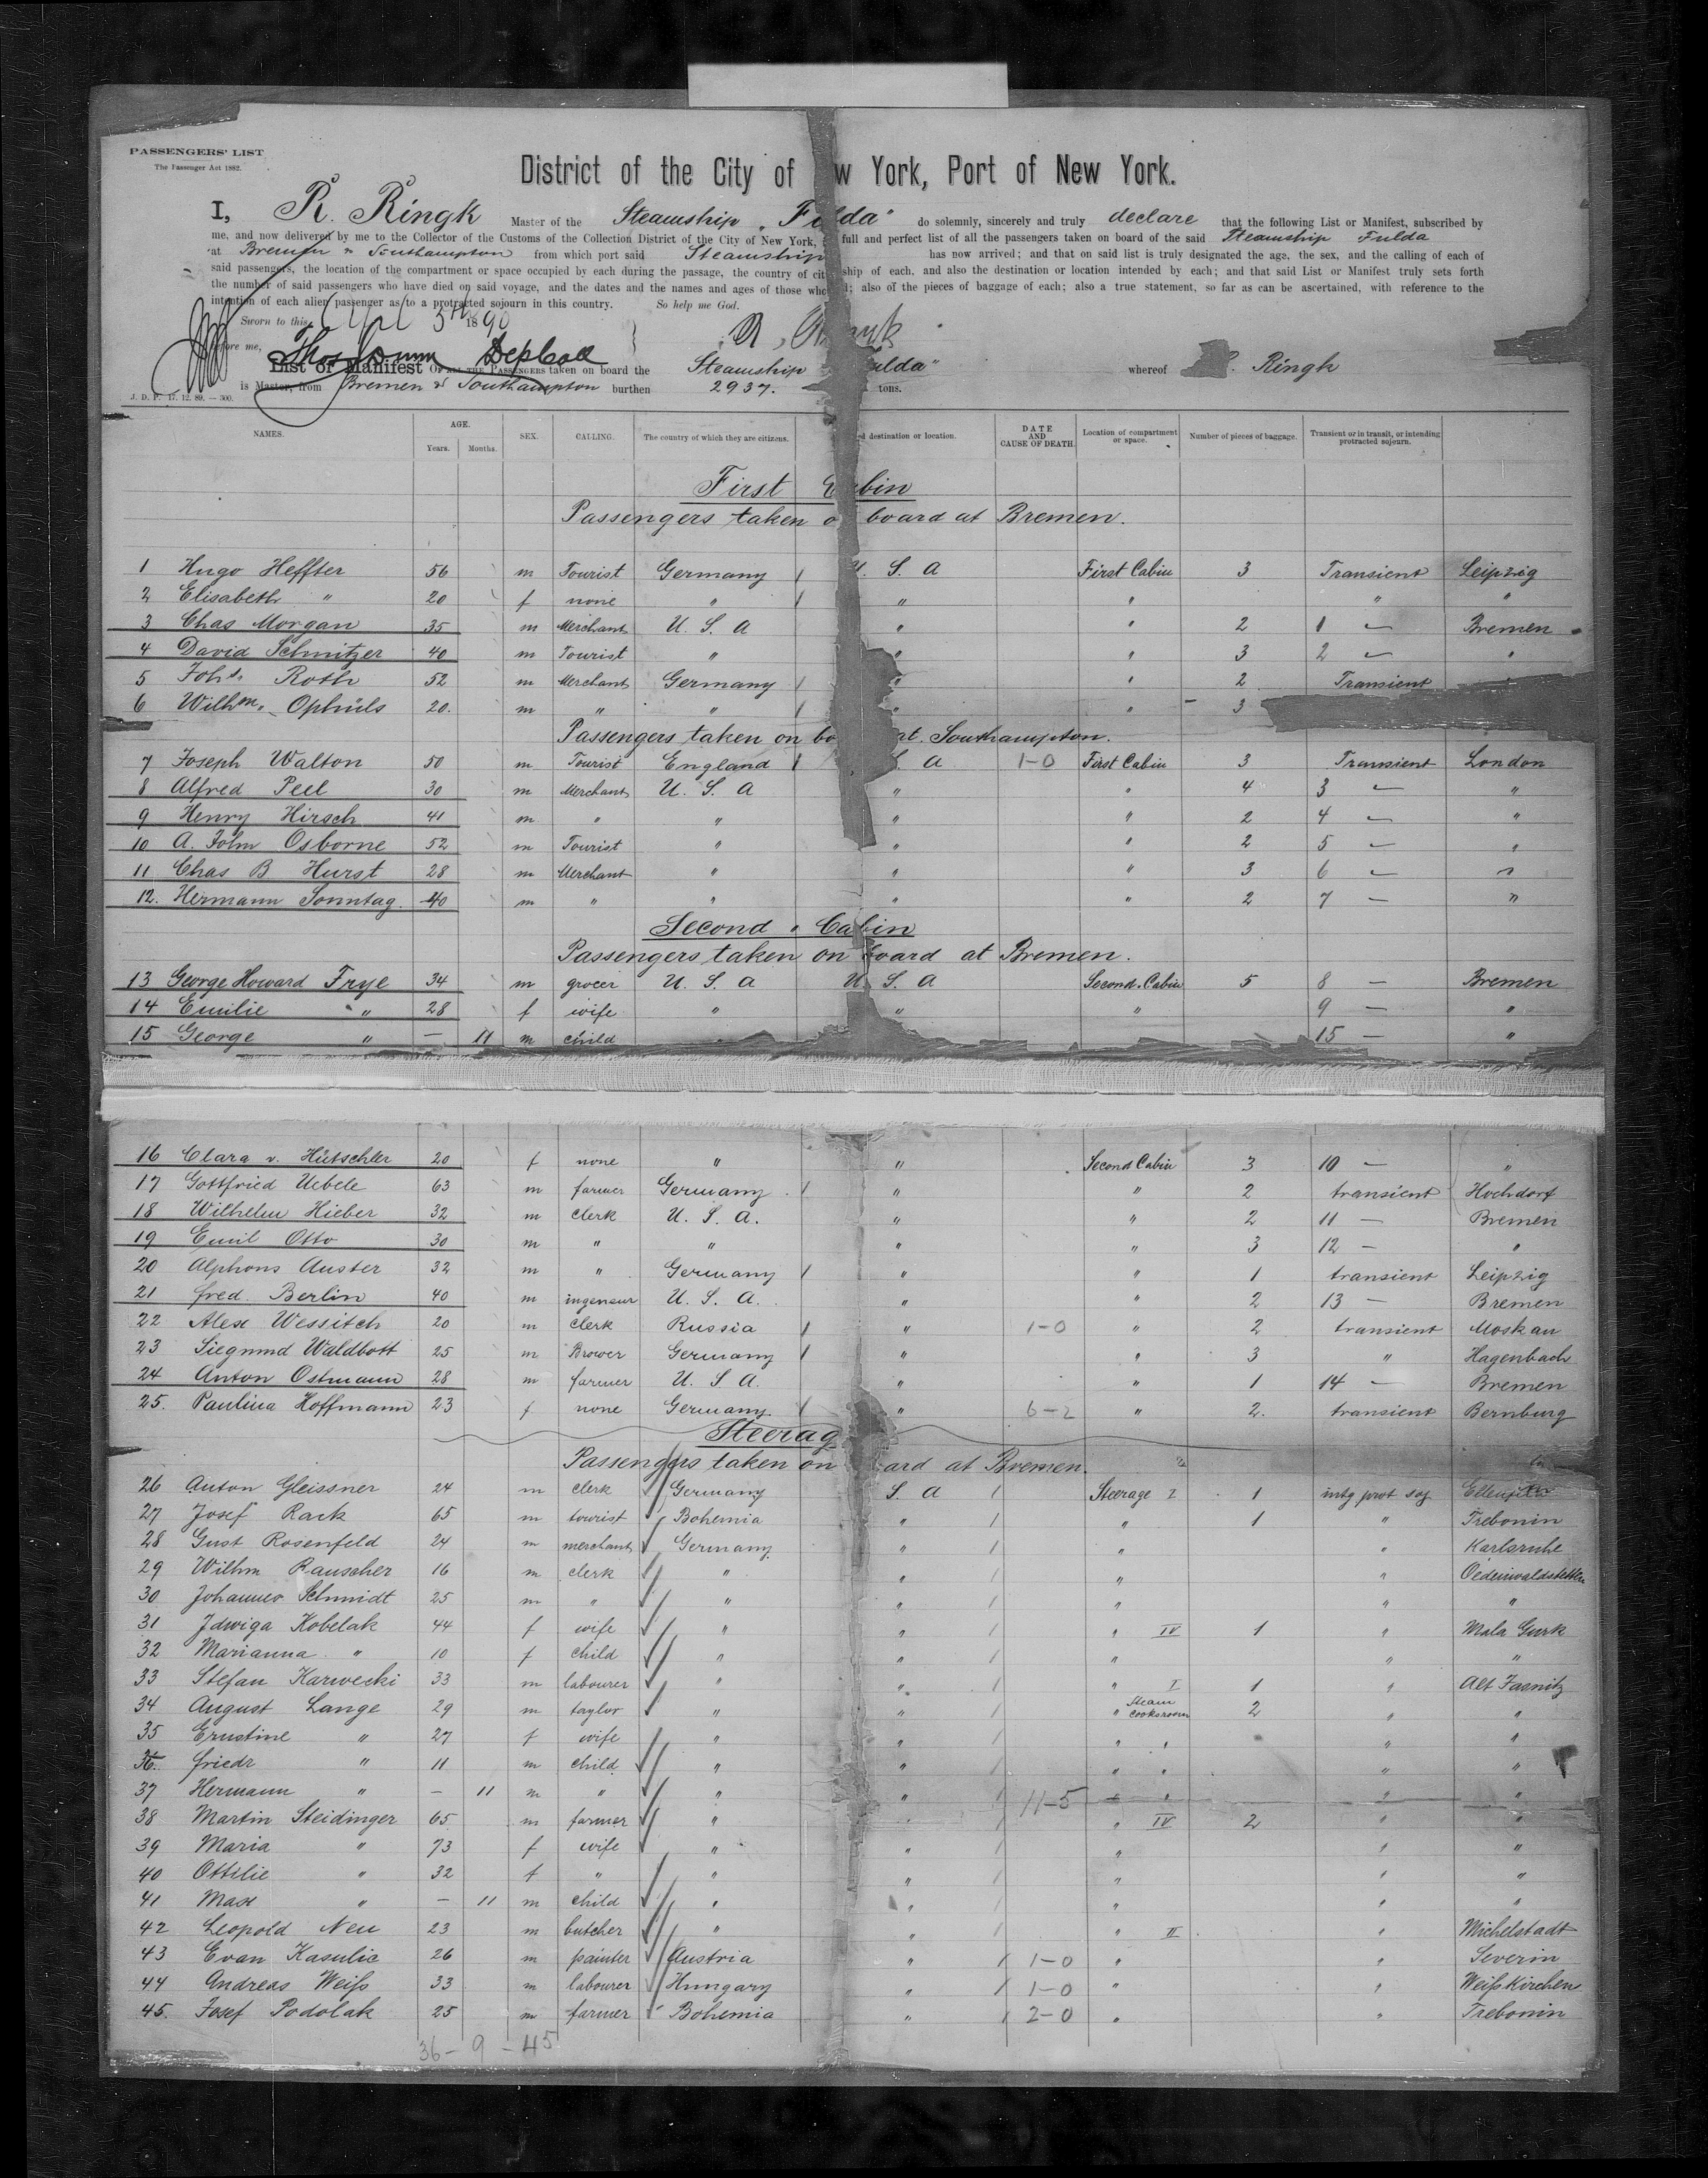 PASSENGERS' LIST
The Passenger Act 1882.
District of the City of w York, Port of New York.
I, R. Ringk Master of the Steamship „Fulda" do solemnly, sincerely and truly declare that the following List or Manifest, subscribed by
me, and now delivered by me to the Collector of the Customs of the Collection District of the City of New York, full and perfect list of all the passengers taken on board of the said Steamship Fulda
at Bremen & Southampton from which port said Steamship has now arrived; and that on said list is truly designated the age, the sex, and the calling of each of
said passengers, the location of the compartment or space occupied by each during the passage, the country of cit ship of each, and also the destination or location intended by each; and that said List or Manifest truly sets forth
the number of said passengers who have died on said voyage, and the dates and the names and ages of those who d; also of the pieces of baggage of each; also a true statement, so far as can be ascertained, with reference to the
intention of each alien passenger as to a protracted sojourn in this country. So help me God.
Sworn to this April 5th 1890
before me,
List or Manifest OF ALL THE PASSENGERS taken on board the Steamship ulda" whereof R. Ringk
is Master, from Bremen & Southampton burthen 2937. tons.
J. D. P. 17. 12. 89. — 300.
NAMES. AGE. Years. Months. SEX. CALLING. The country of which they are citizens. d destination or location. DATE AND CAUSE OF DEATH. Location of compartment or space. Number of pieces of baggage. Transient or in transit, or intending protracted sojourn.
First Cabin
Passengers taken o board at Bremen.
1 Hugo Heffter 56 m Tourist Germany / U. S. A First Cabin 3 Transient Leipzig
2 Elisabeth " 20 f none " / " " " "
3 Chas Morgan 35 m Merchant U. S. A " " 2 1 — Bremen
4 David Schnitzer 40 m Tourist " " " 3 2 — "
5 Johs. Roth 52 m Merchant Germany / " " 2 Transient
6 Wilhm. Ophüls 20. m " " / " " 3
Passengers taken on bo at Southampton.
7 Joseph Walton 50 m Tourist England / S. A 1-0 First Cabin 3 Transient London
8 Alfred Peel 30 m Merchant U. S. A " " 4 3 — "
9 Henry Hirsch 41 m " " " " 2 4 — "
10 A. John Osborne 52 m Tourist " " " 2 5 — "
11 Chas B Hurst 28 m Merchant " " " 3 6 — "
12. Hermann Sonntag 40 m " " " " 2 7 — "
Second Cabin
Passengers taken on board at Bremen.
13 George Howard Frye 34 m grocer U. S. A U. S. A Second Cabin 5 8 — Bremen
14 Emilie " 28 f wife " " " 9 — "
15 George " — 11 m child 15 — "
16 Clara v. Hütschler 20 f none " " Second Cabin 3 10 — "
17 Gottfried Uebele 63 m farmer Germany / " " 2 transient Hochdorf
18 Wilhelm Hieber 32 m clerk U. S. A. " " 2 11 — Bremen
19 Emil Otto 30 m " " " " 3 12 — "
20 Alphons Auster 32 m " Germany / " " 1 transient Leipzig
21 fred. Berlin 40 m ingenieur U. S. A. " " 2 13 — Bremen
22 Alex Wessitch 20 m clerk Russia / " 1-0 " 2 transient Moskau
23 Siegmund Waldbott 25 m Brower Germany / " " 3 " Hagenbach
24 Anton Ostmann 28 m farmer U. S. A. " " 1 14 — Bremen
25. Paulina Hoffmann 23 f none Germany / " 6-2 " 2. transient Bernburg
Steerag
Passengers taken on ard at Bremen.
26 Anton Gleissner 24 m clerk Germany S. A / Steerage I 1 intg prot soj
27 Josef Rack 65 m tourist Bohemia " / " 1 " Trebonin
28 Gust Rosenfeld 24 m merchant Germany " / " " Karlsruhe
29 Wilhm Rauscher 16 m clerk " " / " " Oedenwaldstetten
30 Johannes Schmidt 25 m " " " / " " "
31 Jdwiga Kobelak 44 f wife " " / " IV 1 " Mala Gurk
32 Marianna " 10 f child " " / " " "
33 Stefan Karwecki 33 m labourer " " / " I 1 " Alt Jasnitz
34 August Lange 29 m taylor " " / " Steam cooksroom 2 " "
35 Ernstine " 27 f wife " " / " " " "
36. friedr " 11 m child " " / " " " "
37 Hermann " — 11 m " " " / 11-5 " " " "
38 Martin Steidinger 65 m farmer " " / " IV 2 " "
39 Maria " 73 f wife " " / " " "
40 Ottilie " 32 f " " " / " " "
41 Max " — 11 m child " " / " " "
42 Leopold Neu 23 m butcher " " / " II " Michelstadt
43 Evan Kasulic 26 m painter Austria " / 1-0 " " Severin
44 Andreas Weiß 33 m labourer Hungary " / 1-0 " " Weißkirchen
45. Josef Podolak 25 m farmer Bohemia " / 2-0 " " Trebonin
36 - 9 - 45